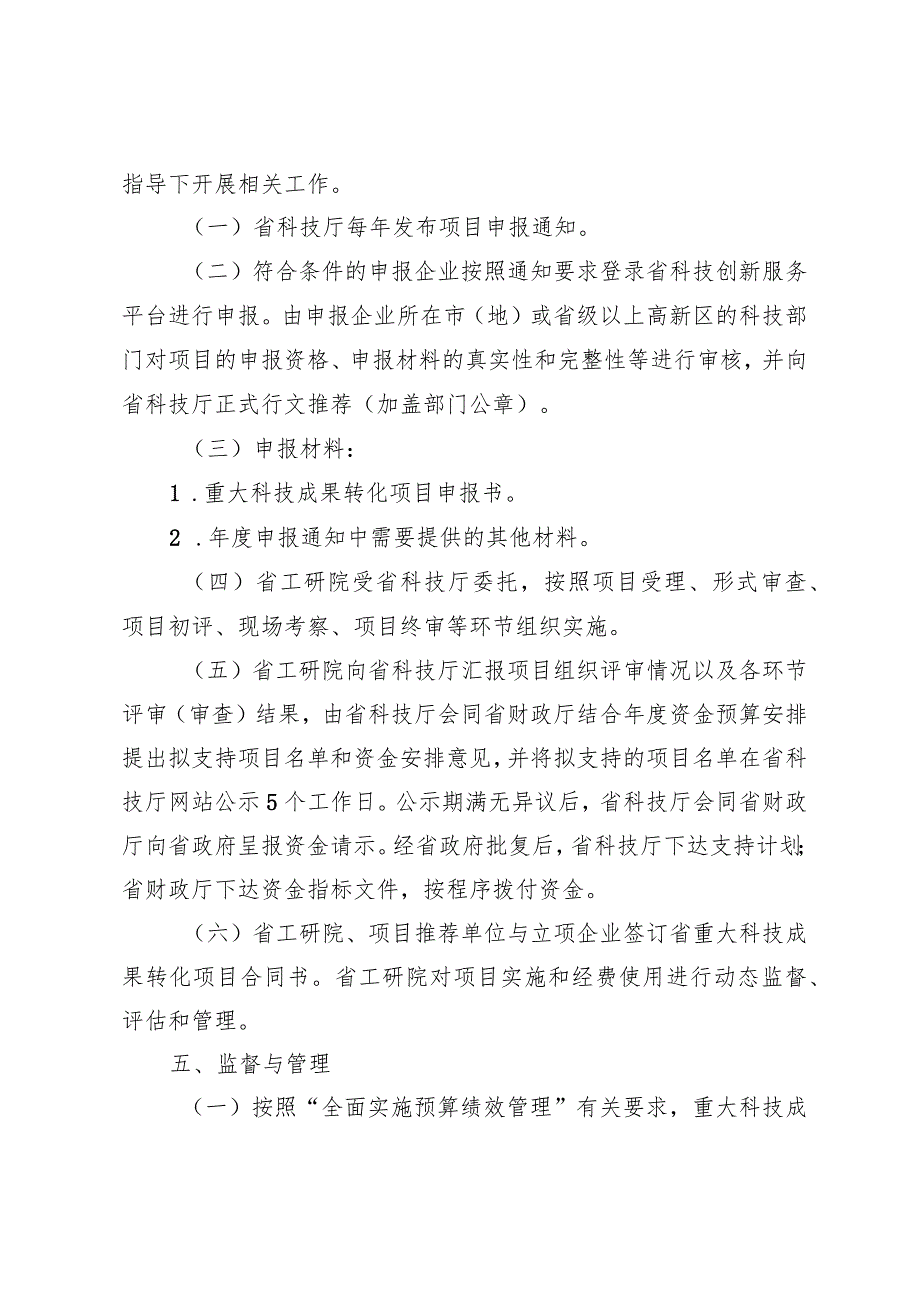 指导下开展相关工作。
（一）省科技厅每年发布项目申报通知。
（二）符合条件的申报企业按照通知要求登录省科技创新服务
平台进行申报。由申报企业所在市（地）或省级以上高新区的科技部
门对项目的申报资格、申报材料的真实性和完整性等进行审核，并向
省科技厅正式行文推荐（加盖部门公章）。
（三）申报材料：
1 .重大科技成果转化项目申报书。
2 .年度申报通知中需要提供的其他材料。
（四）省工研院受省科技厅委托，按照项目受理、形式审查、
项目初评、现场考察、项目终审等环节组织实施。
（五）省工研院向省科技厅汇报项目组织评审情况以及各环节
评审（审查）结果，由省科技厅会同省财政厅结合年度资金预算安排
提出拟支持项目名单和资金安排意见，并将拟支持的项目名单在省科
技厅网站公示 5 个工作日。公示期满无异议后，省科技厅会同省财政
厅向省政府呈报资金请示。经省政府批复后，省科技厅下达支持计划；
省财政厅下达资金指标文件，按程序拨付资金。
（六）省工研院、项目推荐单位与立项企业签订省重大科技成
果转化项目合同书。省工研院对项目实施和经费使用进行动态监督、
评估和管理。
五、监督与管理
（一）按照“全面实施预算绩效管理”有关要求，重大科技成